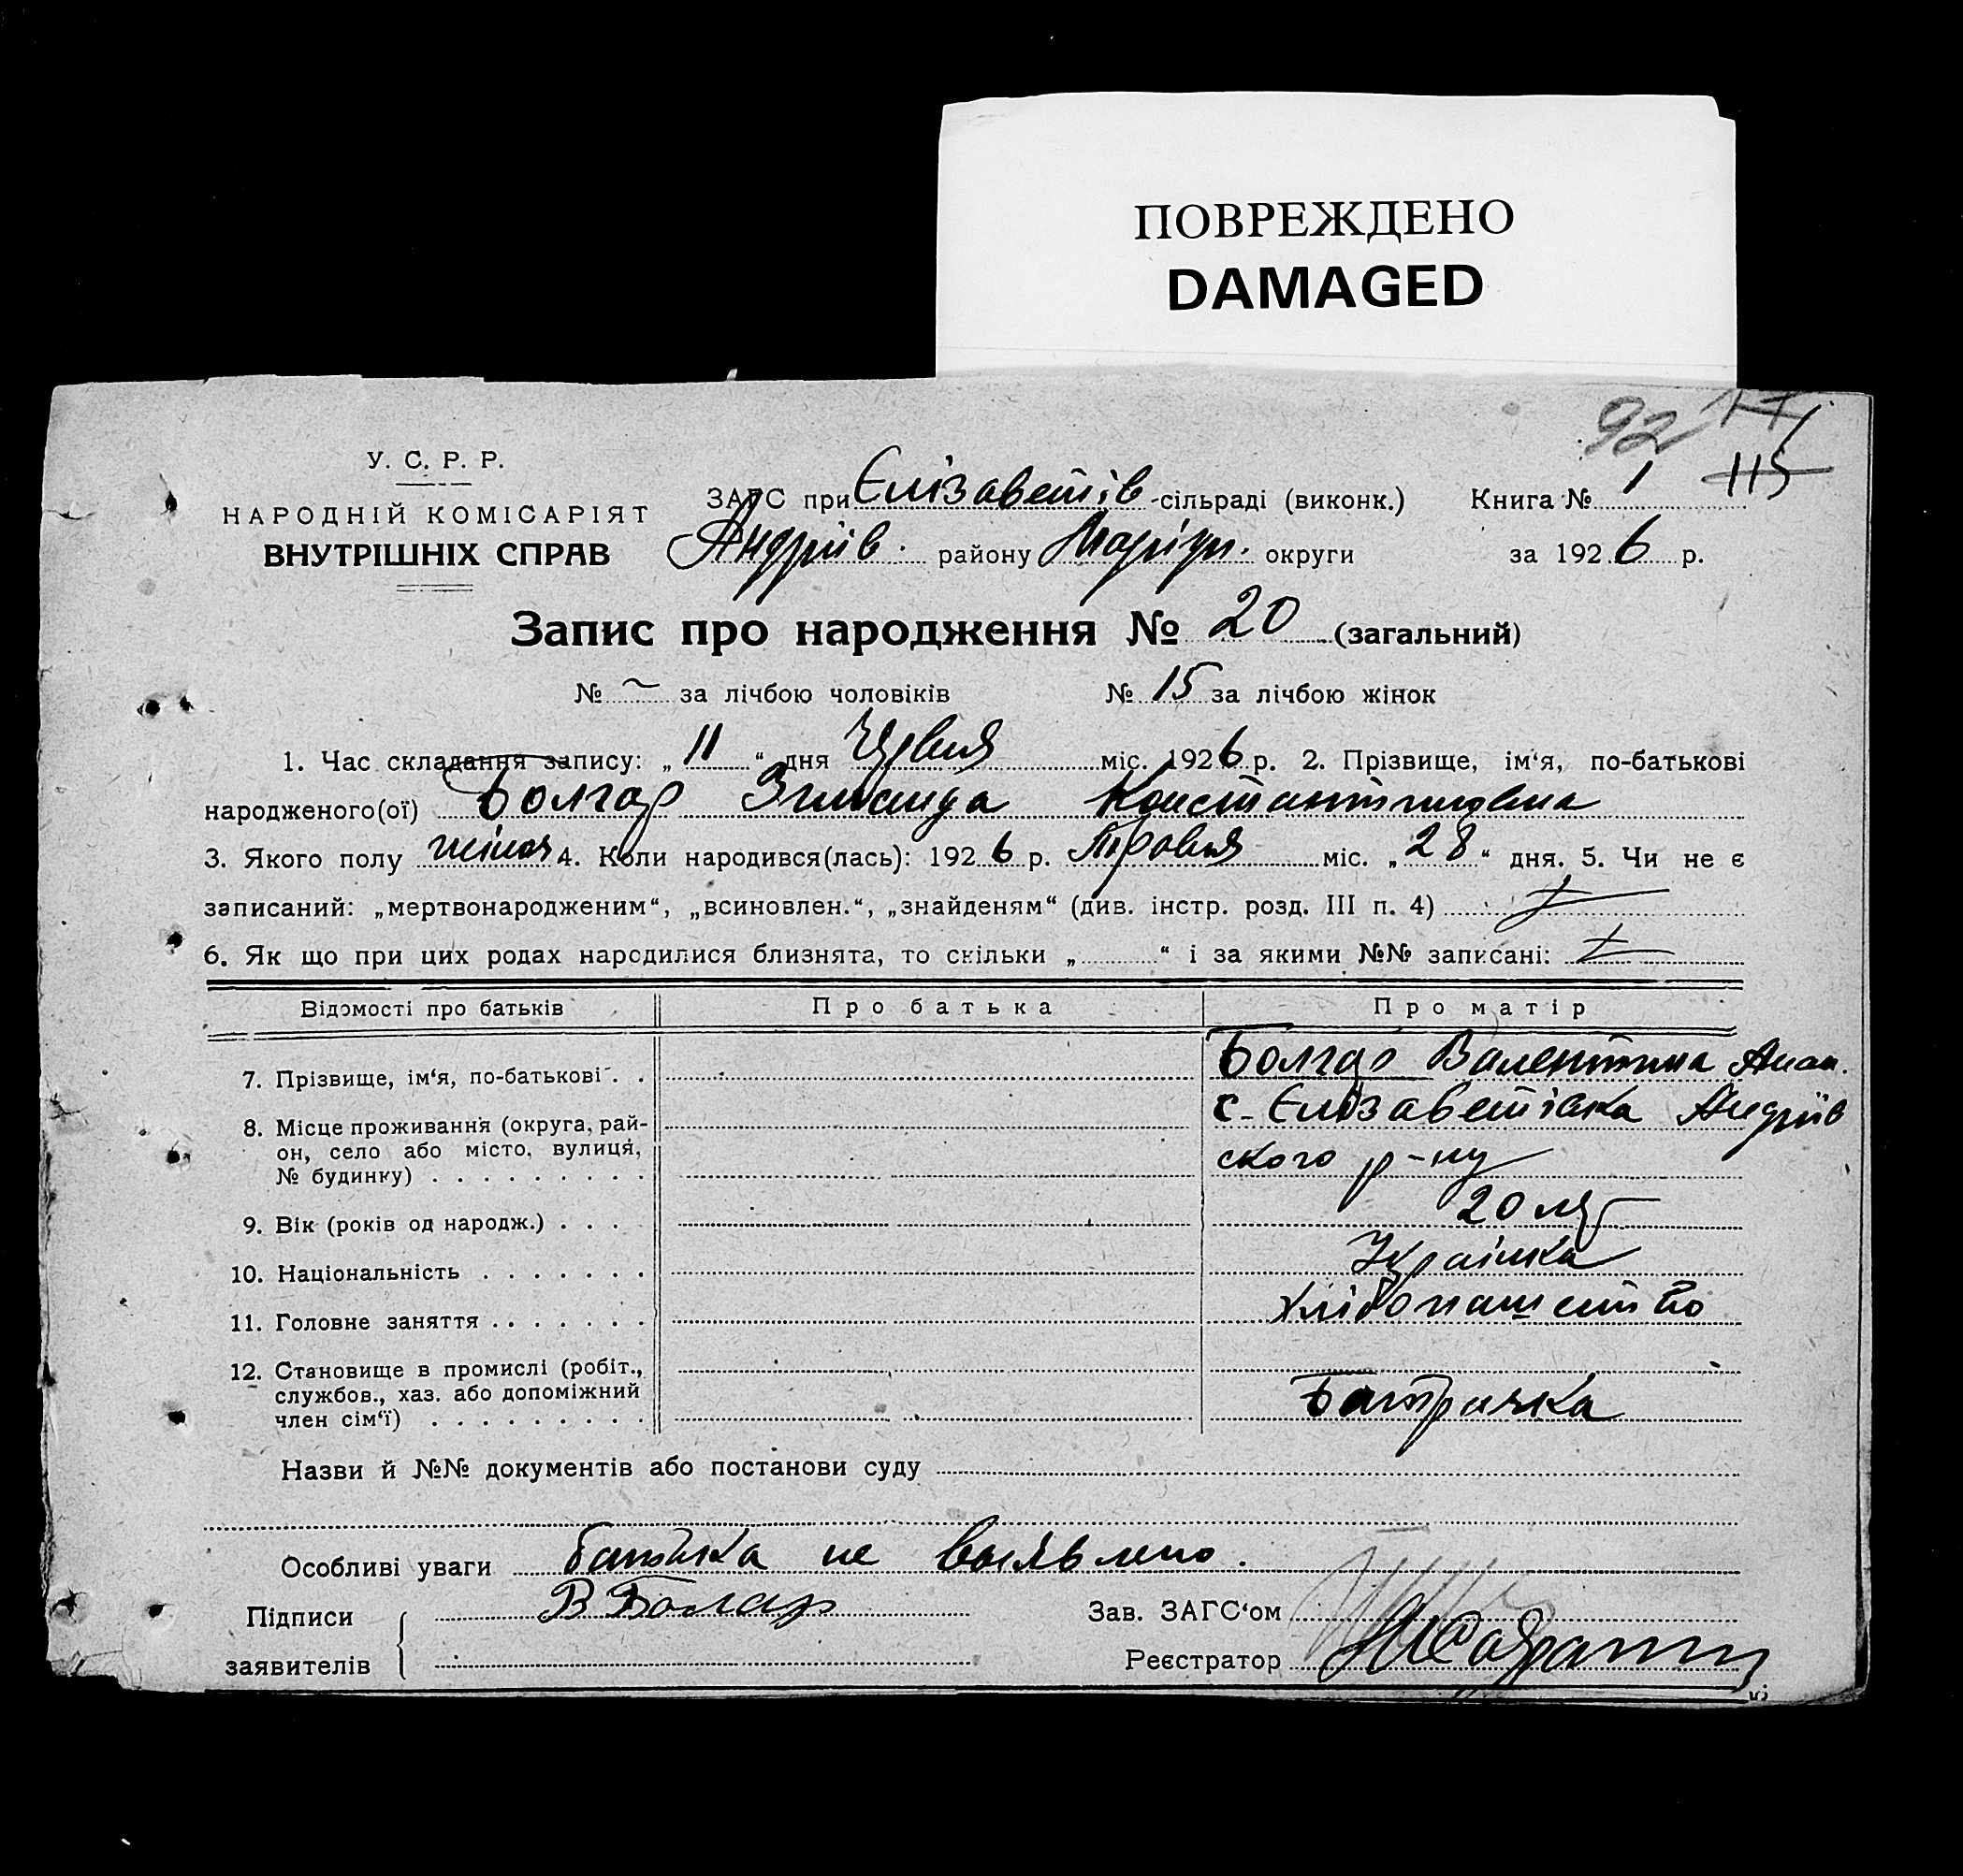 ПОВРЕЖДЕНО
DAMAGED
92 17
115
У. С. Р. Р.
НАРОДНІЙ КОМІСАРІЯТ
ВНУТРІШНІХ СПРАВ
ЗАГС при Єлізаветів -сільраді (виконк.) Книга № 1
Андріїв. району Маріуп. округи за 1926 р.
Запис про народження № 20 (загальний)
№ ~ за лічбою чоловіків № 15 за лічбою жінок
1. Час складання запису: „ 11 “ дня Червня міс. 1926 р. 2. Прізвище, ім‘я, по-батькові
народженого(ої) Болгар Зинаида Константиновна
3. Якого полу жіноч 4. Коли народився(лась): 1926 р. Травня міс. „ 28 “ дня. 5. Чи не є
записаний: „мертвонародженим“, „всиновлен.“, „знайденям“ (див. інстр. розд. III п. 4)
6. Як що при цих родах народилися близнята, то скільки „ “ і за якими №№ записані:
Відомості про батьків Про батька Про матір
7. Прізвище, ім‘я, по-батькові . . Болгар Валентина
8. Місце проживання (округа, рай- с. Єлізаветівка Андріїв
он, село або місто, вулиця, ского р-ну
№ будинку) . . . . . . . . .
9. Вік (років од народж.) . . . 20 лет
10. Національність . . . . . . . Українка
11. Головне заняття . . . . . . . хлібопашество
12. Становище в промислі (робіт.,
службов., хаз. або допоміжний Батрачка
член сім‘ї) . . . . . . . . .
Назви й №№ документів або постанови суду
Особливі уваги батька не выявлено.
Підписи В Болгар Зав. ЗАГС‘ом
заявителів Реєстратор